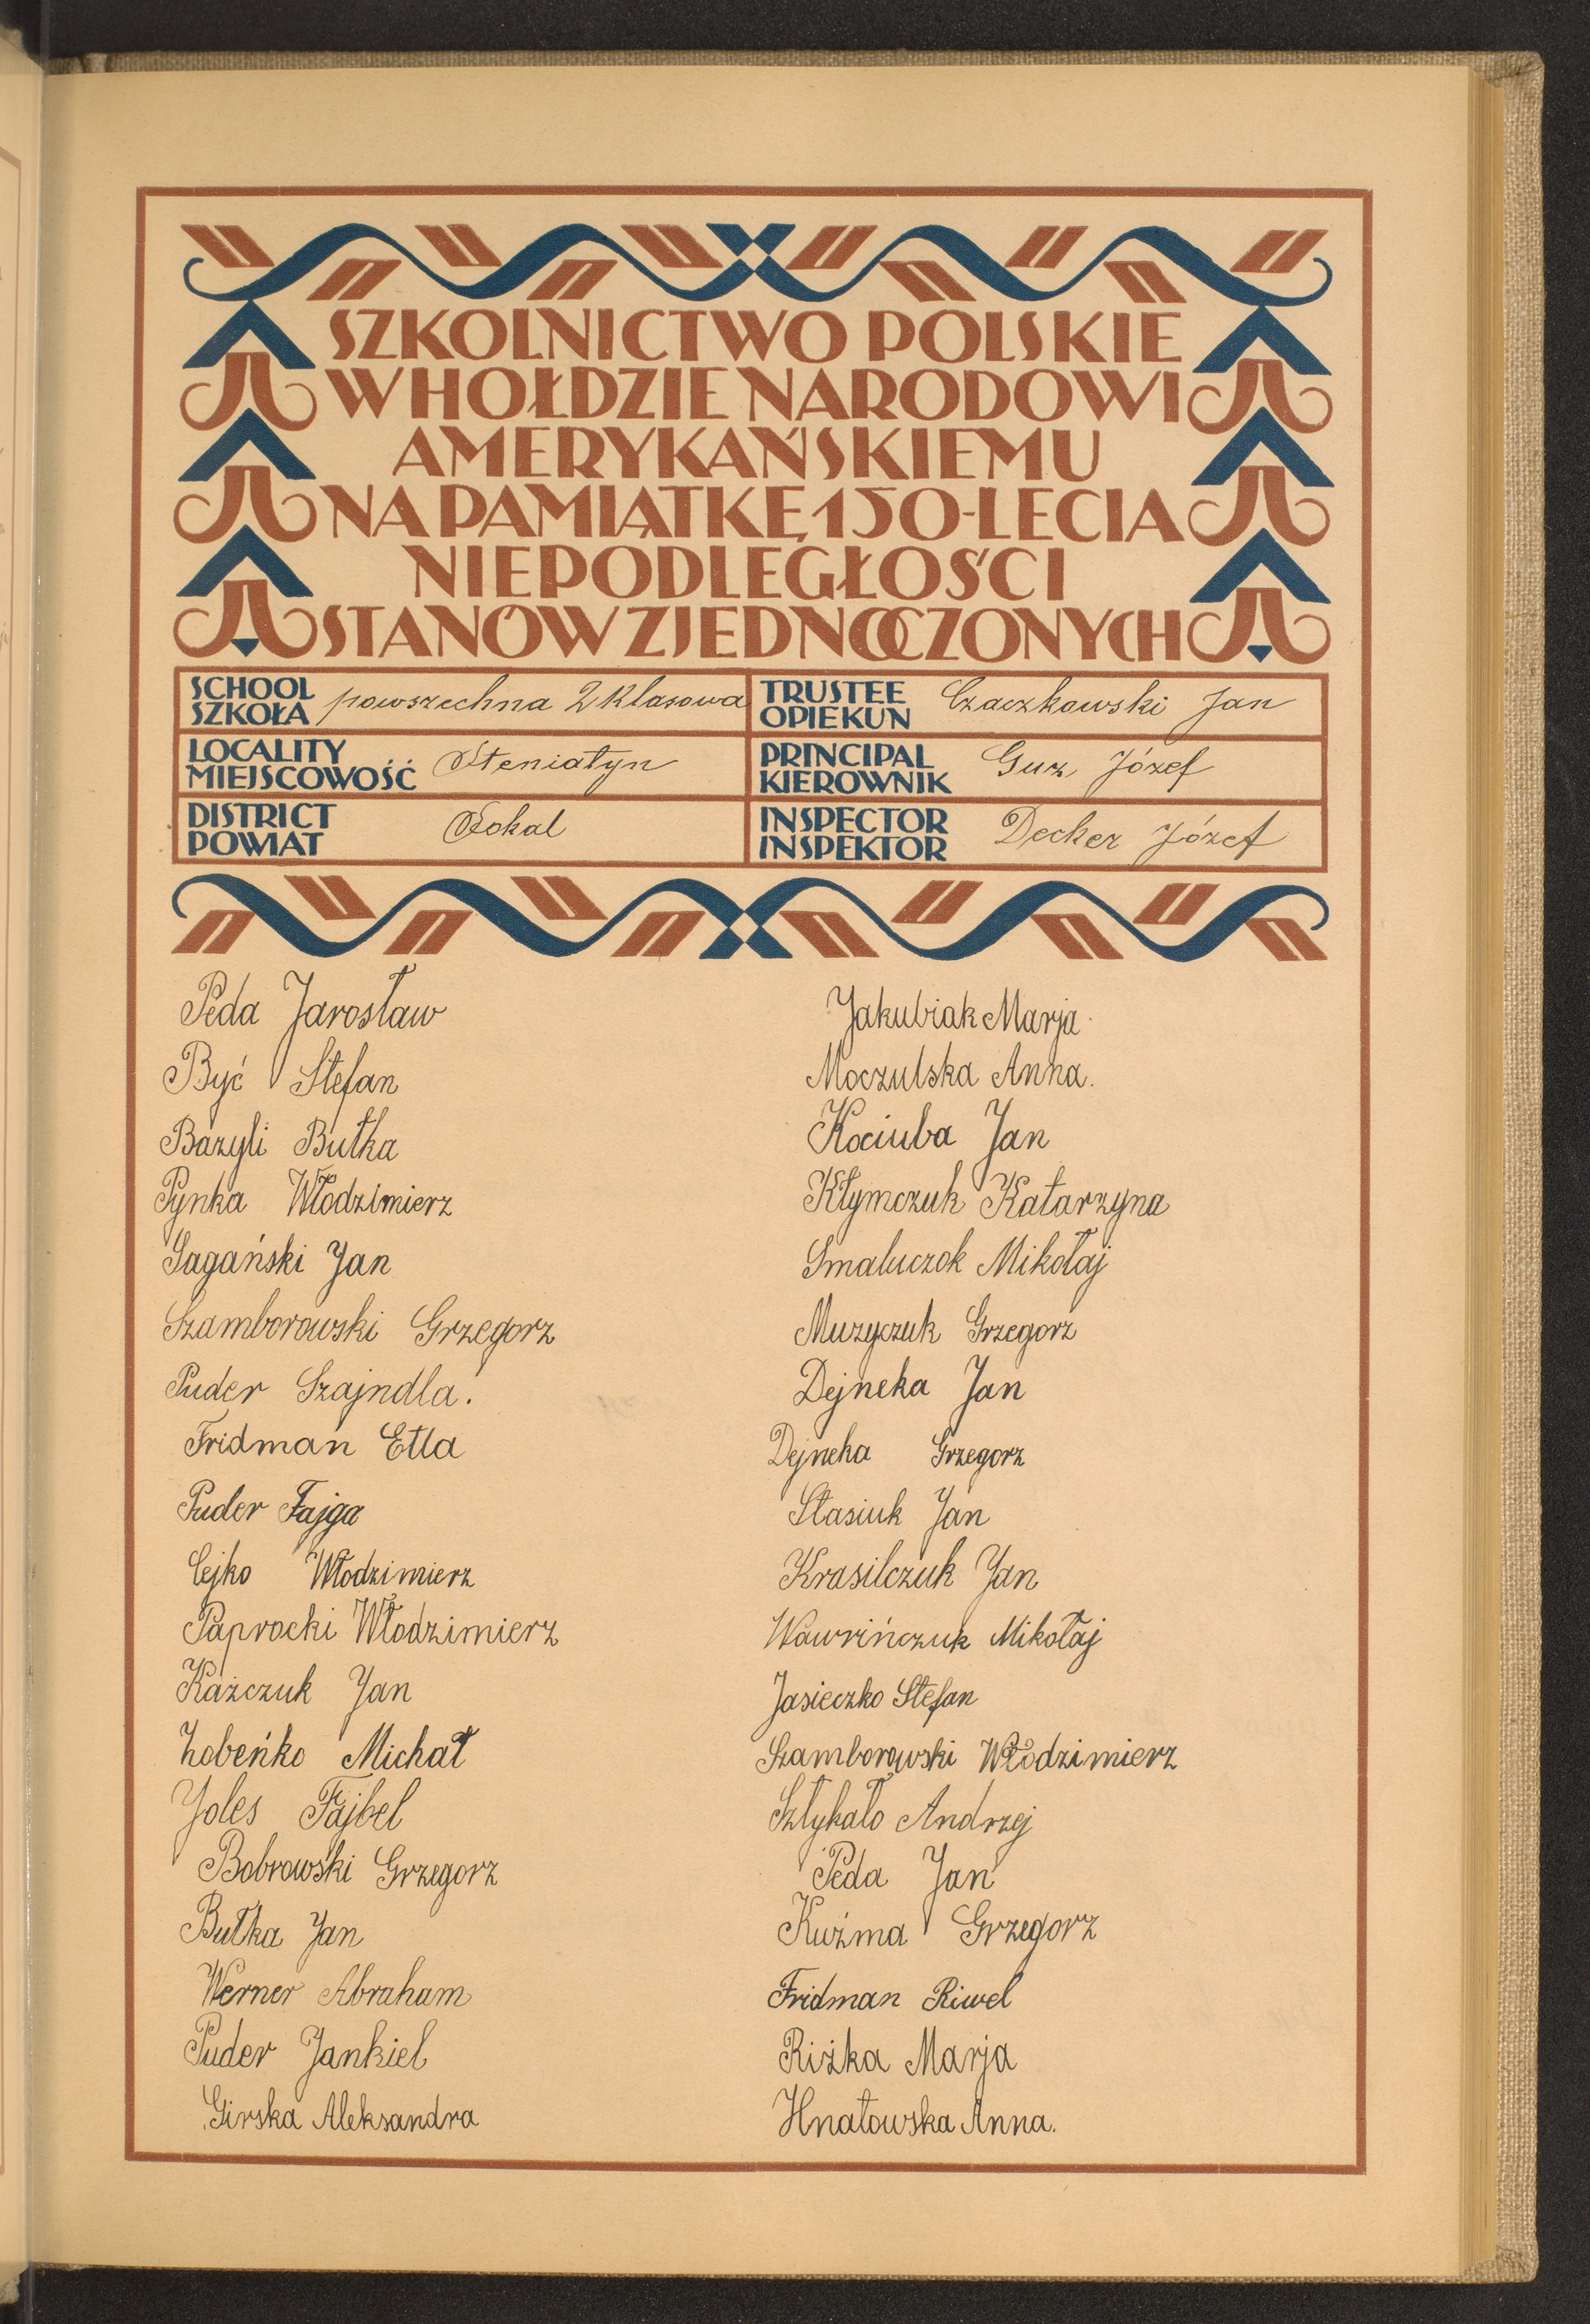 SZKOLNICTWO POLSKIE
W HOŁDZIE NARODOWI
AMERYKAŃSKIEMU
NA PAMIĄTKĘ 150-LECIA
NIEPODLEGŁOŚCI
STANÓW ZJEDNOCZONYCH
SCHOOL
SZKOŁA
powszechna 2 klasowa
TRUSTEE
OPIEKUN
Czaczkowski Jan
LOCALITY
MIEJSCOWOŚĆ
Steniatyn
PRINCIPAL
KIEROWNIK
Guz Józef
DISTRICT
POWIAT
Sokal
INSPECTOR
INSPEKTOR
Decker Józef
Peda Jarosław
Być Stefan
Bazyli Bułka
Pynka Włodzimierz
Sagański Jan
Szamborowski Grzegorz
Puder Szajndla.
Fridman Etla
Puder Fajga
Cejko Włodzimierz
Paprocki Włodzimierz
Każczuk Jan
Zobeńko Michał
Joles Fajbel
Bobrowski Grzegorz
Bułka Jan
Werner Abraham
Puder Jankiel
Girska Aleksandra
Jakubiak Marja
Moczulska Anna.
Kociuba Jan
Kłymczuk Katarzyna
Smaluczok Mikołaj
Muzyczuk Grzegorz
Dejneka Jan
Dejneka Grzegorz
Stasiuk Jan
Krasilczuk Jan
Wawrińczuk Mikołaj
Jasieczko Stefan
Szamborowski Włodzimierz
Sztykało Andrzej
Peda Jan
Kuźma Grzegorz
Fridman Riwel
Riżka Marja
Hnatowska Anna.